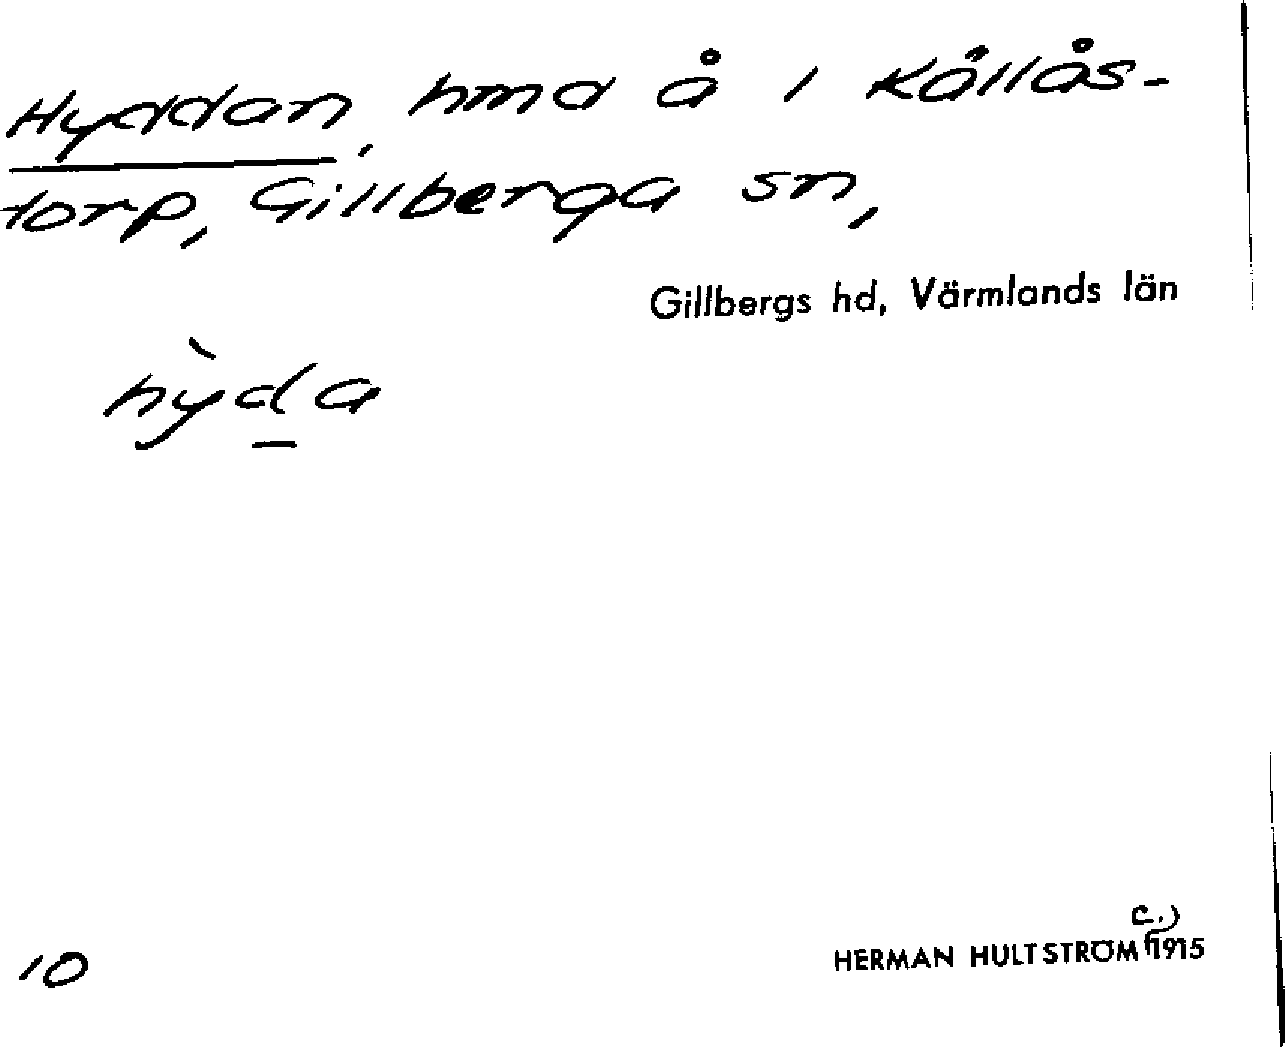 Hyddan, hmd å 1 Kållås-
torp, Gillberga sn,
Gillbergs hd, Värmlands län
hỳda
c.)
HERMAN HULTSTRÖM 1915
10